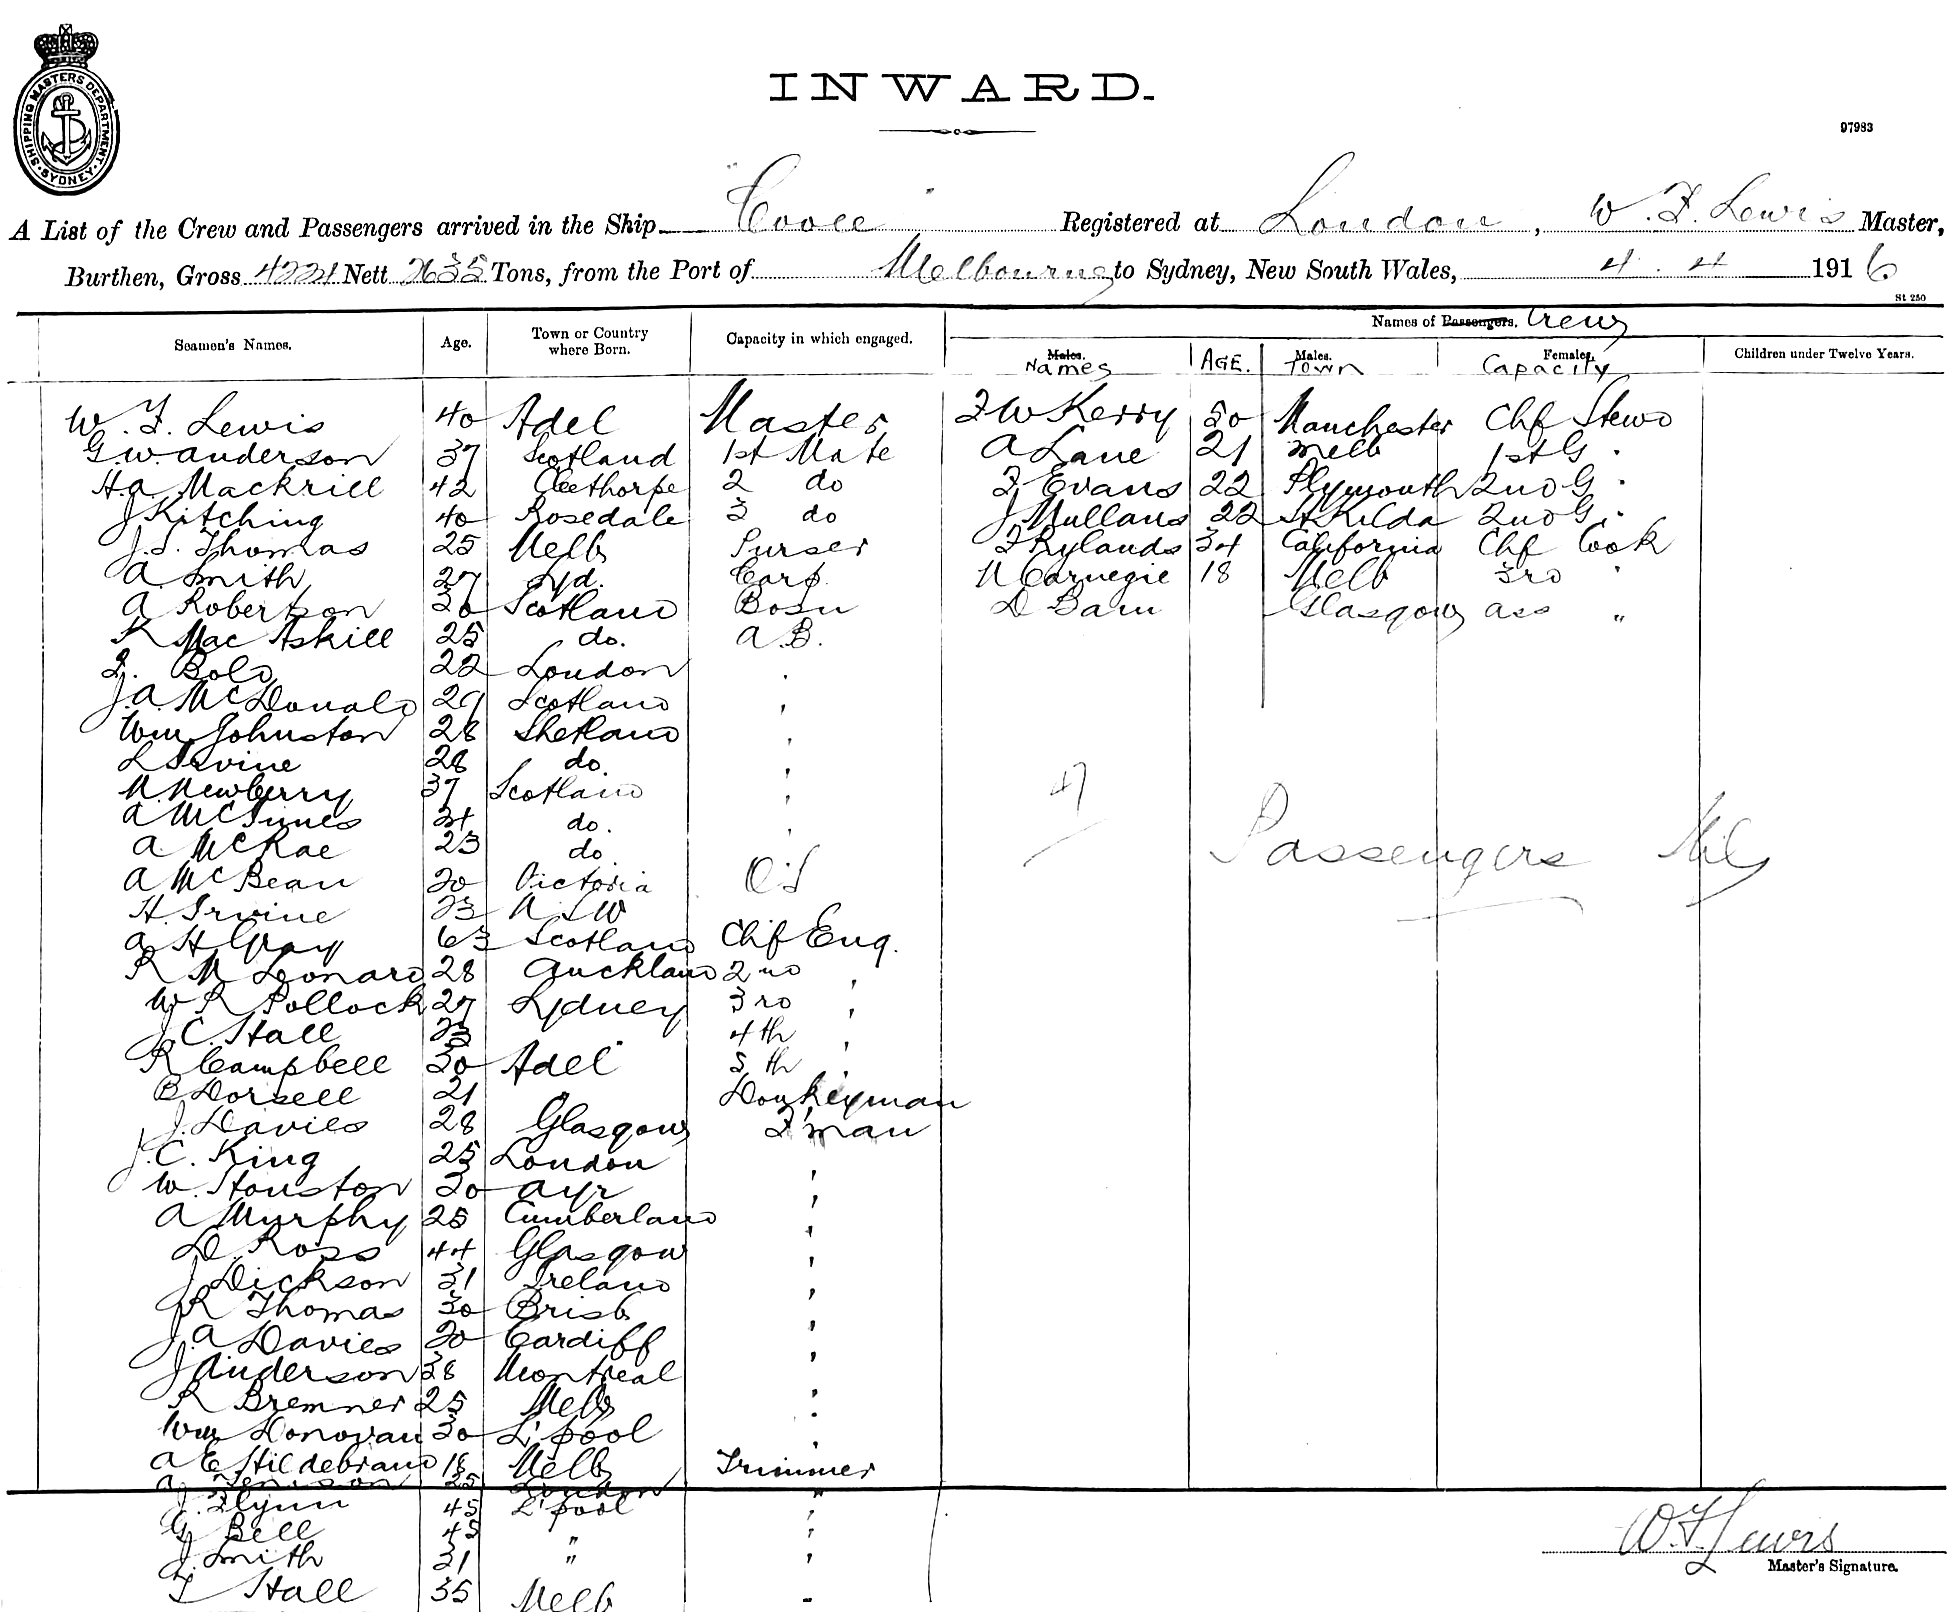 SHIPPING MASTERS DEPARTMENT. SYDNEY.
INWARD.
97983
A List of the Crew and Passengers arrived in the Ship "Cooee" Registered at London, W. F. Lewis Master,
Burthen, Gross 4221 Nett 2635 Tons, from the Port of Melbourne to Sydney, New South Wales, 4. 4 1916.
St 250
Seamen's Names. Age. Town or Country where Born. Capacity in which engaged. Names of Passengers. Crew
Males. Names AGE. Males. Town Females. Capacity Children under Twelve Years.
W. F. Lewis 40 Adel Master F W Kerry 50 Manchester Chf Stewd
G. W. Anderson 37 Scotland 1st Mate A Lane 21 Melb 1st G "
H. A Mackrill 42 Cleethorpe 2 do F Evans 22 Plymouth 2nd G "
J Kitching 40 Rosedale 3 do J Mullans 22 St Kilda 2nd G "
J. S. Thomas 25 Melb Purser F Rylands 34 California Chf Cook
A Smith 27 Syd. Carp. N Carnegie 18 Melb 3rd "
A Robertson 26 Scotland Bosn D Bain Glasgow ass "
K Mac Askill 25 do. A.B.
Bold 22 London "
J. A. McDonald 29 Scotland "
Wm Johnston 28 Shetland "
L Irvine 28 do. "
N Newberry 37 Scotland "
A McInnes 34 do. "
A McRae 23 do "
A McBean 20 Victoria OS
H. Irvine 23 N S W
A H Gray 63 Scotland Chf Eng.
47
Passengers Nil
R M Leonard 28 Auckland 2nd "
W R Pollock 27 Sydney 3rd "
J. C. Hall 23 " 4th "
R Campbell 30 Adel 5th "
B Dorsell 21 " Donkeyman
J. Davies 28 Glasgow F'man
J. C. King 25 London "
W. Houston 30 Ayr "
A Murphy 25 Cumberland "
D. Ross 44 Glasgow "
J Dickson 31 Ireland "
R Thomas 30 Brisb "
J. A Davies 30 Cardiff "
J Anderson 38 Montreal "
R Bremner 25 Melb "
Wm Donovan 30 L'pool "
A E Hildebrand 18 Melb Trimmer
25 London "
J. Flynn 45 L'pool "
G Bell 45 " "
J. Smith 31 " "
F Hall 35 Melb "
W. F. Lewis
Master's Signature.